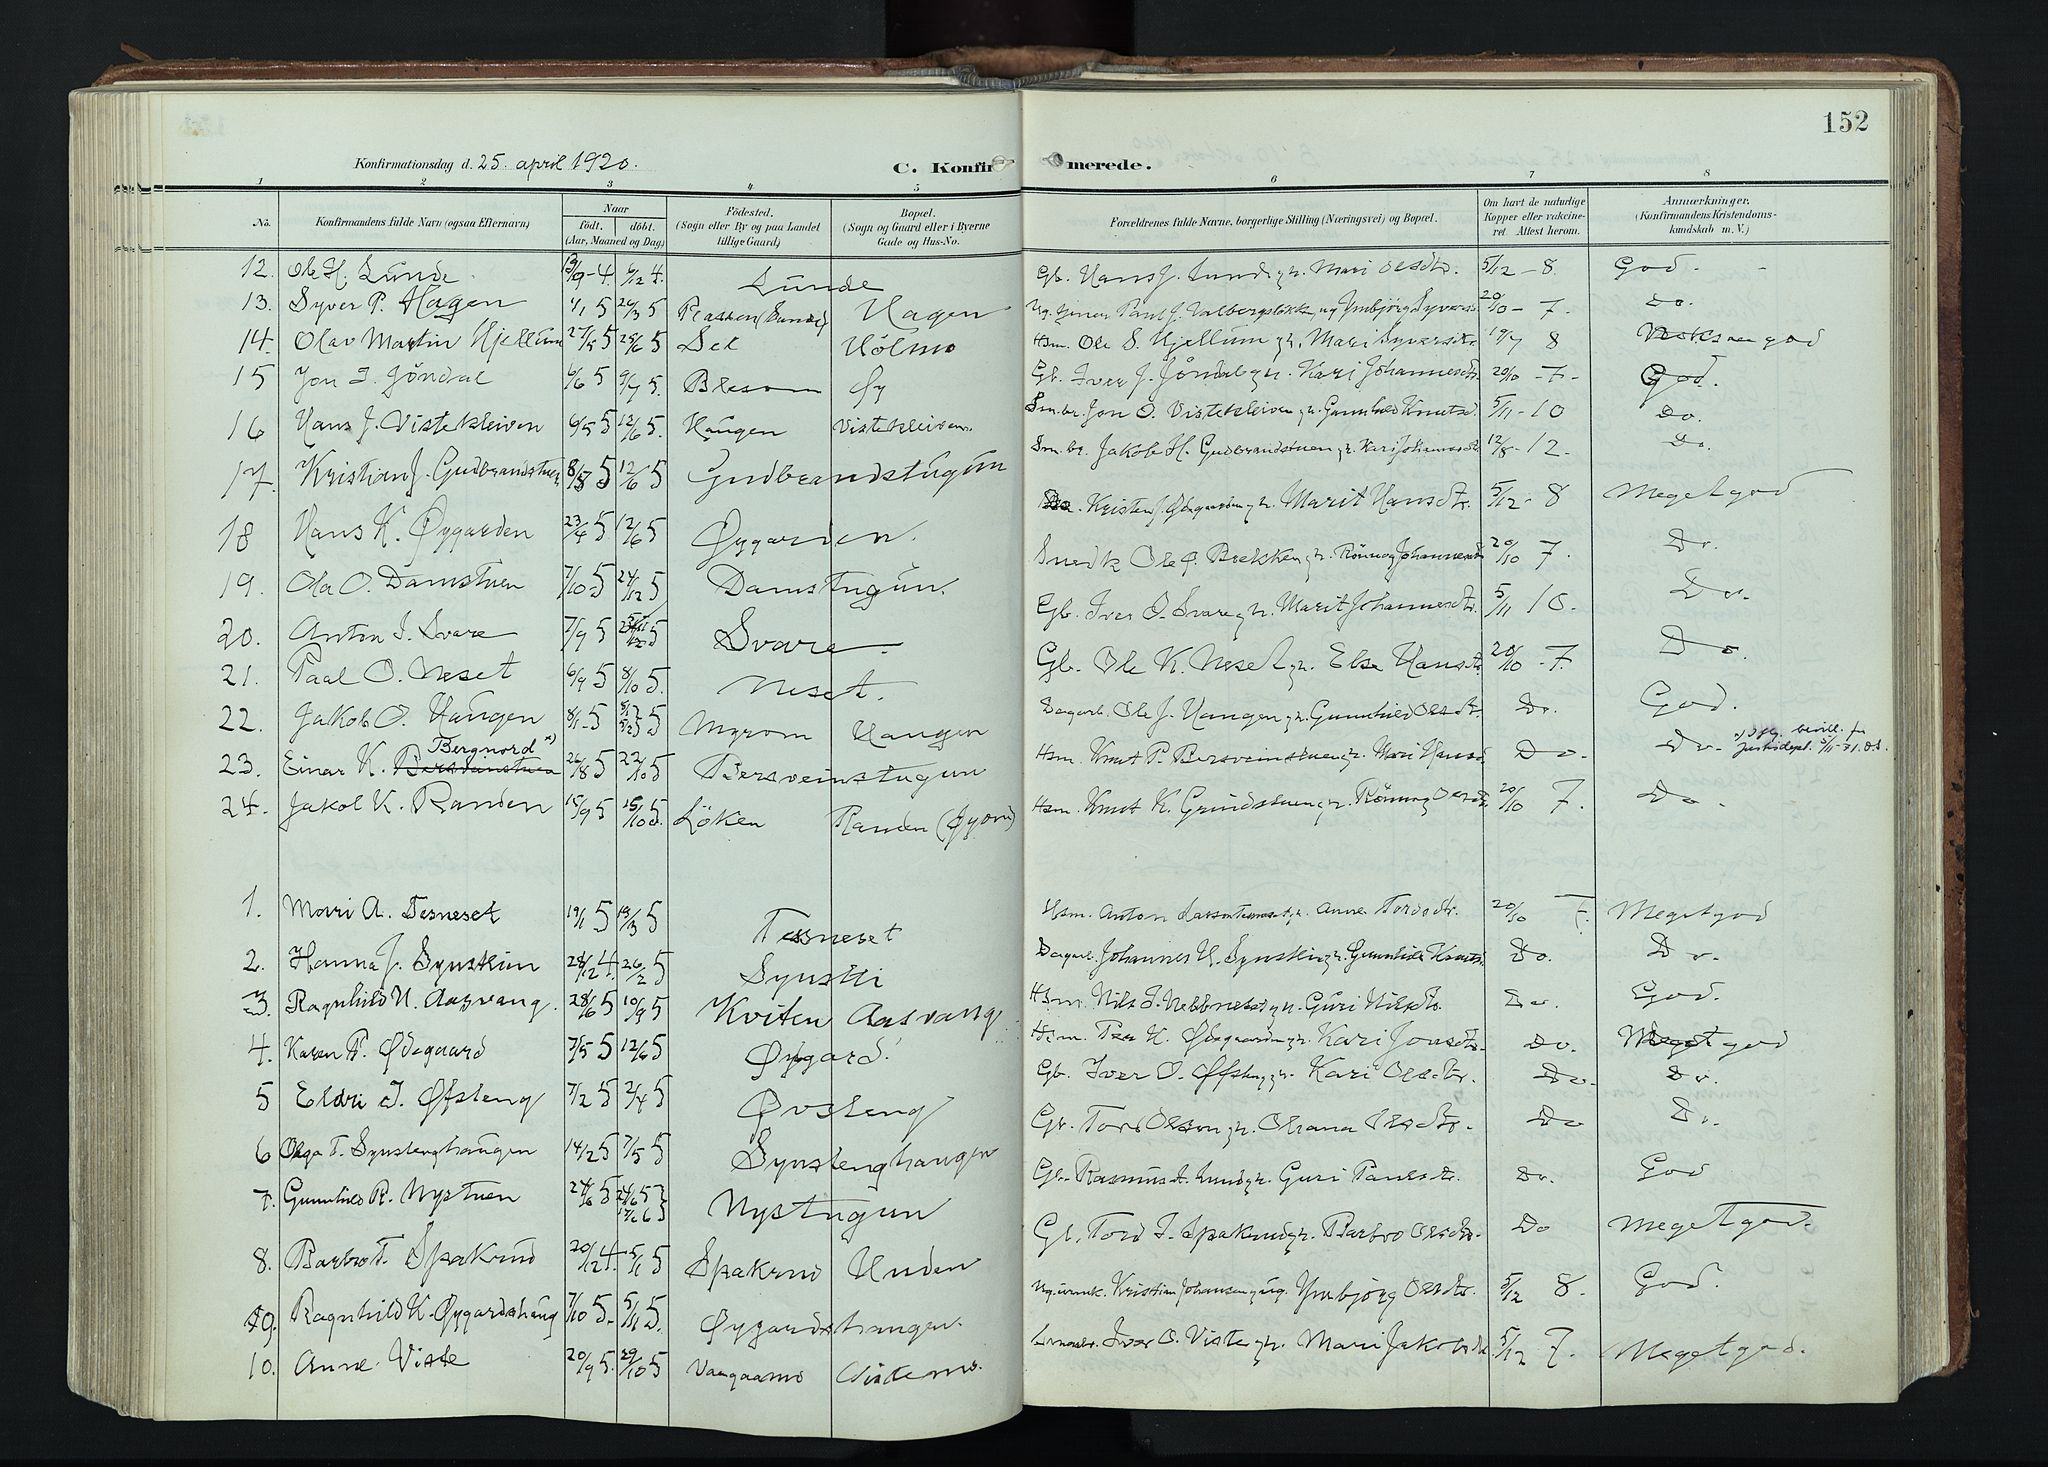 152
Konfirmationsdag d. 25. april 1920.
C. Konfir merede.
1 2 3 4 5 6 7 8
No. Konfirmandens fulde Navn (ogsaa Efternavn) Naar født. døbt. (Aar, Maaned og Dag) Fødested. (Sogn eller By og paa Landet tillige Gaard) Bopæl. (Sogn og Gaard eller i Byerne Gade og Hus-No. Forældrenes fulde Navne, borgerlige Stilling (Næringsvei) og Bopæl. Om havt de naturlige Kopper eller vaccineret. Attest herom. Anmærkninger. (Konfirmandens Kristendomskundskab m. V.)
12. Ole H. Lunde 13/9-4. 6/12 4. Lunde Gb. Hans J. Lunde g h. Mari Olsdtr. 5/12-8. God.
13. Syver P. Hagen 4/1 5 26/3 5 Hagen Paul J. Valbergslökken og Ymbjörg Syversd. 20/10-7. Do.
14. Olav Martin Hjellum 27/5 5 25/6 5 Sel Holmo Hsm. Ole S. Hjellum g h. Mari Syversdtr. 19/7 8 god
15 Jon I. Jöndal 6/6 5 9/7 5. Blessom Øy Gb. Iver J. Jöndal g h. Kari Johannesdtr. 20/10-7- God.
16 Hans J. Vistekleiven 6/5 5 12/6 5. Haugen Vistekleiven. Sm.br. Jon O. Vistekleiven g h. Gunnhild Knutsd. 5/11-10 Do.
17. Kristian J. Gudbrandstuen 8/5 5 12/6 5 Gudbrandstugun Sm.br. Jakob H. Gudbrandstuen g h. Kari Johannesdtr 12/8-12. Do.
18 Hans K. Øygarden 23/4 5 12/6 5 Øygarden. Kristen J. Ødegaarden g h. Marit Hansdtr. 5/12-8 Meget god
19. Ola O. Damstuen 7/10 5 24/12 5 Damstugun. Snedk Ole O. Brekken g h. Rönnog Johannesdtr 20/10 7. Do.
20. Anton I. Svare 7/9 5 5 Svare. Gb. Iver O. Svare g h. Marit Johannesdtr. 5/11 10. Do.
21. Paal O. Neset 6/9 5 8/10 5. Neset. Gb. Ole K. Neset g h. Else Hansdtr 20/10-7. Do.
22. Jakob O. Haugen 8/1-5 5 Myrom Haugen Dagarb. Ole J. Haugen g h. Gunnhild Olsdtr. Do. God.
Bergnord x)
23. Einar K. Bersveinstuen 26/8 5 22/10 5 Bersveinstugun Hsm. Knut P. Bersveinstuen g h. Mari Hansd. Do. Do. x) Iflg. bevill. fra Justisdept. 5/11-31.
24. Jakob K. Randen 15/9 5 15/10 5. Löken Randen (Øyom) Hsm. Knut K. Grindstuen g h. Rönnog Olsdtr 20/10 7. Do.
1. Mari A. Tesneset 19/1 5 19/3 5 Tessneset Hsm. Anton Larsen Tesneset g h. Anne Tordsdtr. 20/10 7. Meget god
2. Hanna J. Synstlien 28/12 4. 26/2 5 Synstli Dagarb. Johannes H. Synstlien g h. Gunnhild Knutsd. Do. Do.
3. Ragnhild N. Aasvang. 28/6 5 10/9 5 Kviten Aasvang Hsm. Nils I. Nebbneset g h. Guri Nilsdtr. Do. God.
4. Karen P. Ødegaard 7/5 5 12/6 5 Øygard. Hsm. Per K. Ødegaarden g h. Kari Jonsdtr. Do. Meget god
5 Eldri I. Øfsteng 7/2 5 2/4 5 Øvsteng Gb. Iver O. Øfsteng g h. Kari Olsdtr. Do. Do.
6 Olga T. Synstenghaugen 14/2 5 7/5 5 Synstenghaugen Gb. Tord Olsson g h. Olsdtr. Do Do.
7. Gunnhild R. Nystuen 24/6 5 Nystugun Gb. Rasmus A. Lund g h. Guri Paulsdtr. Do. God
8. Barbro T. Spakrud 20/12 4. 5/1 5 Spakrud Gb. Tord I. Spakrud g h. Barbro Olsdtr. Do Meget god.
9. Ragnhild K. Øygardshaug 7/10 5. 5/11 5. Øygardshaugen. Ug. Kristian Johansen og ug. Ymbjörg Olsdtr. 5/12 8. God.
10. Anne Viste 20/9 5. 29/10 5 Vaagaamo Vistemo. Iver O. Viste g h. Mari Jakobsd. 5/12 7. Meget god.